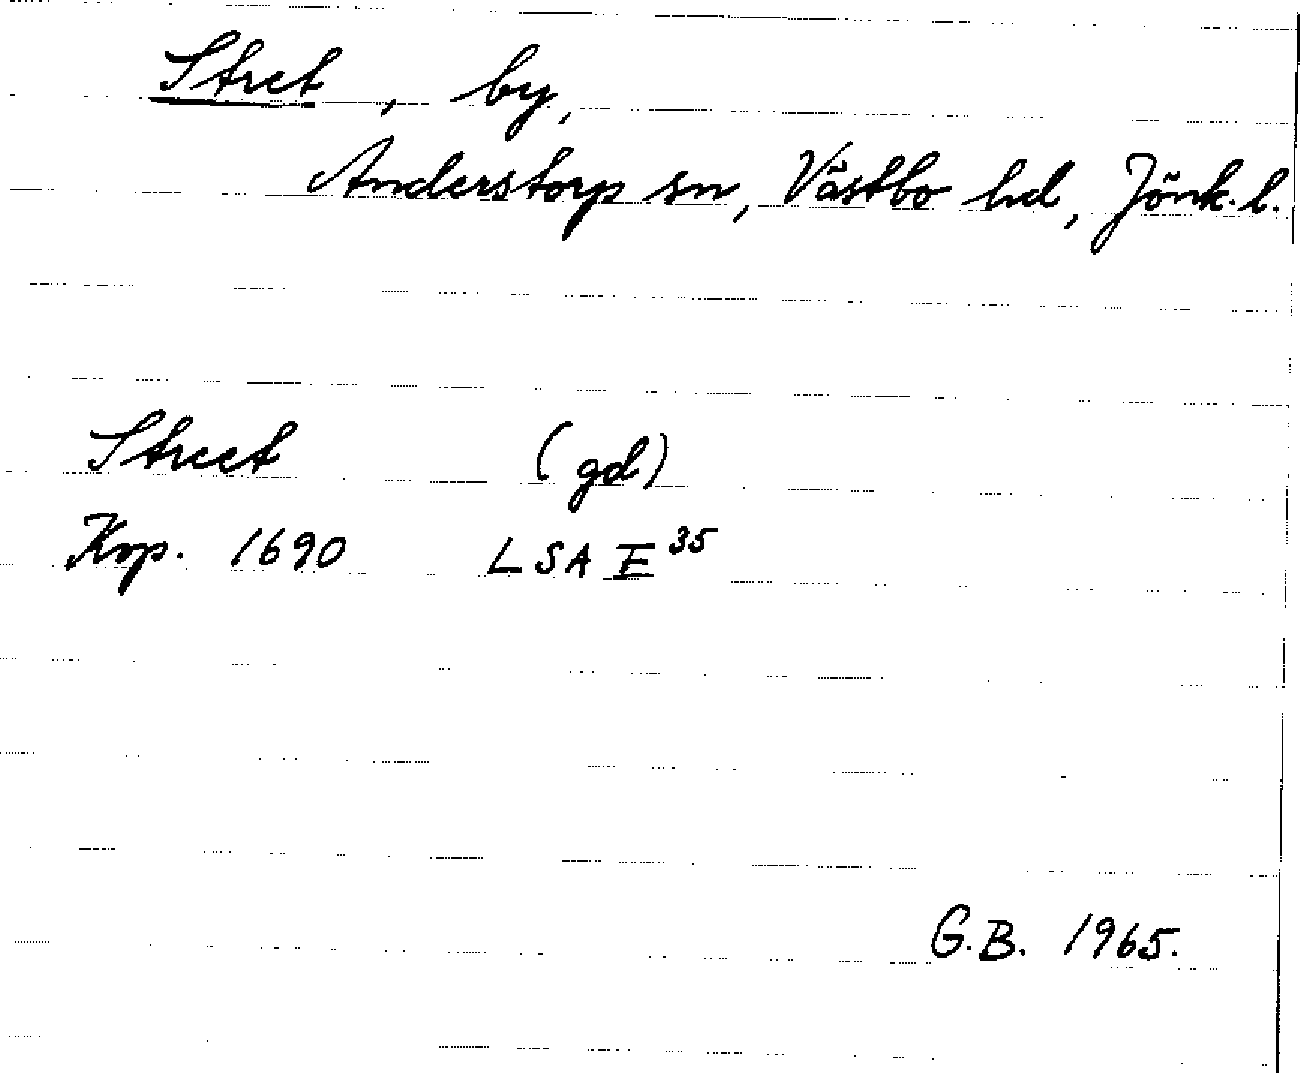 Stret, by,
Anderstorp sn, Västbo hd, Jönk. l.
Street (gd)
Kop. 1690 LSA E³⁵
G.B. 1965.